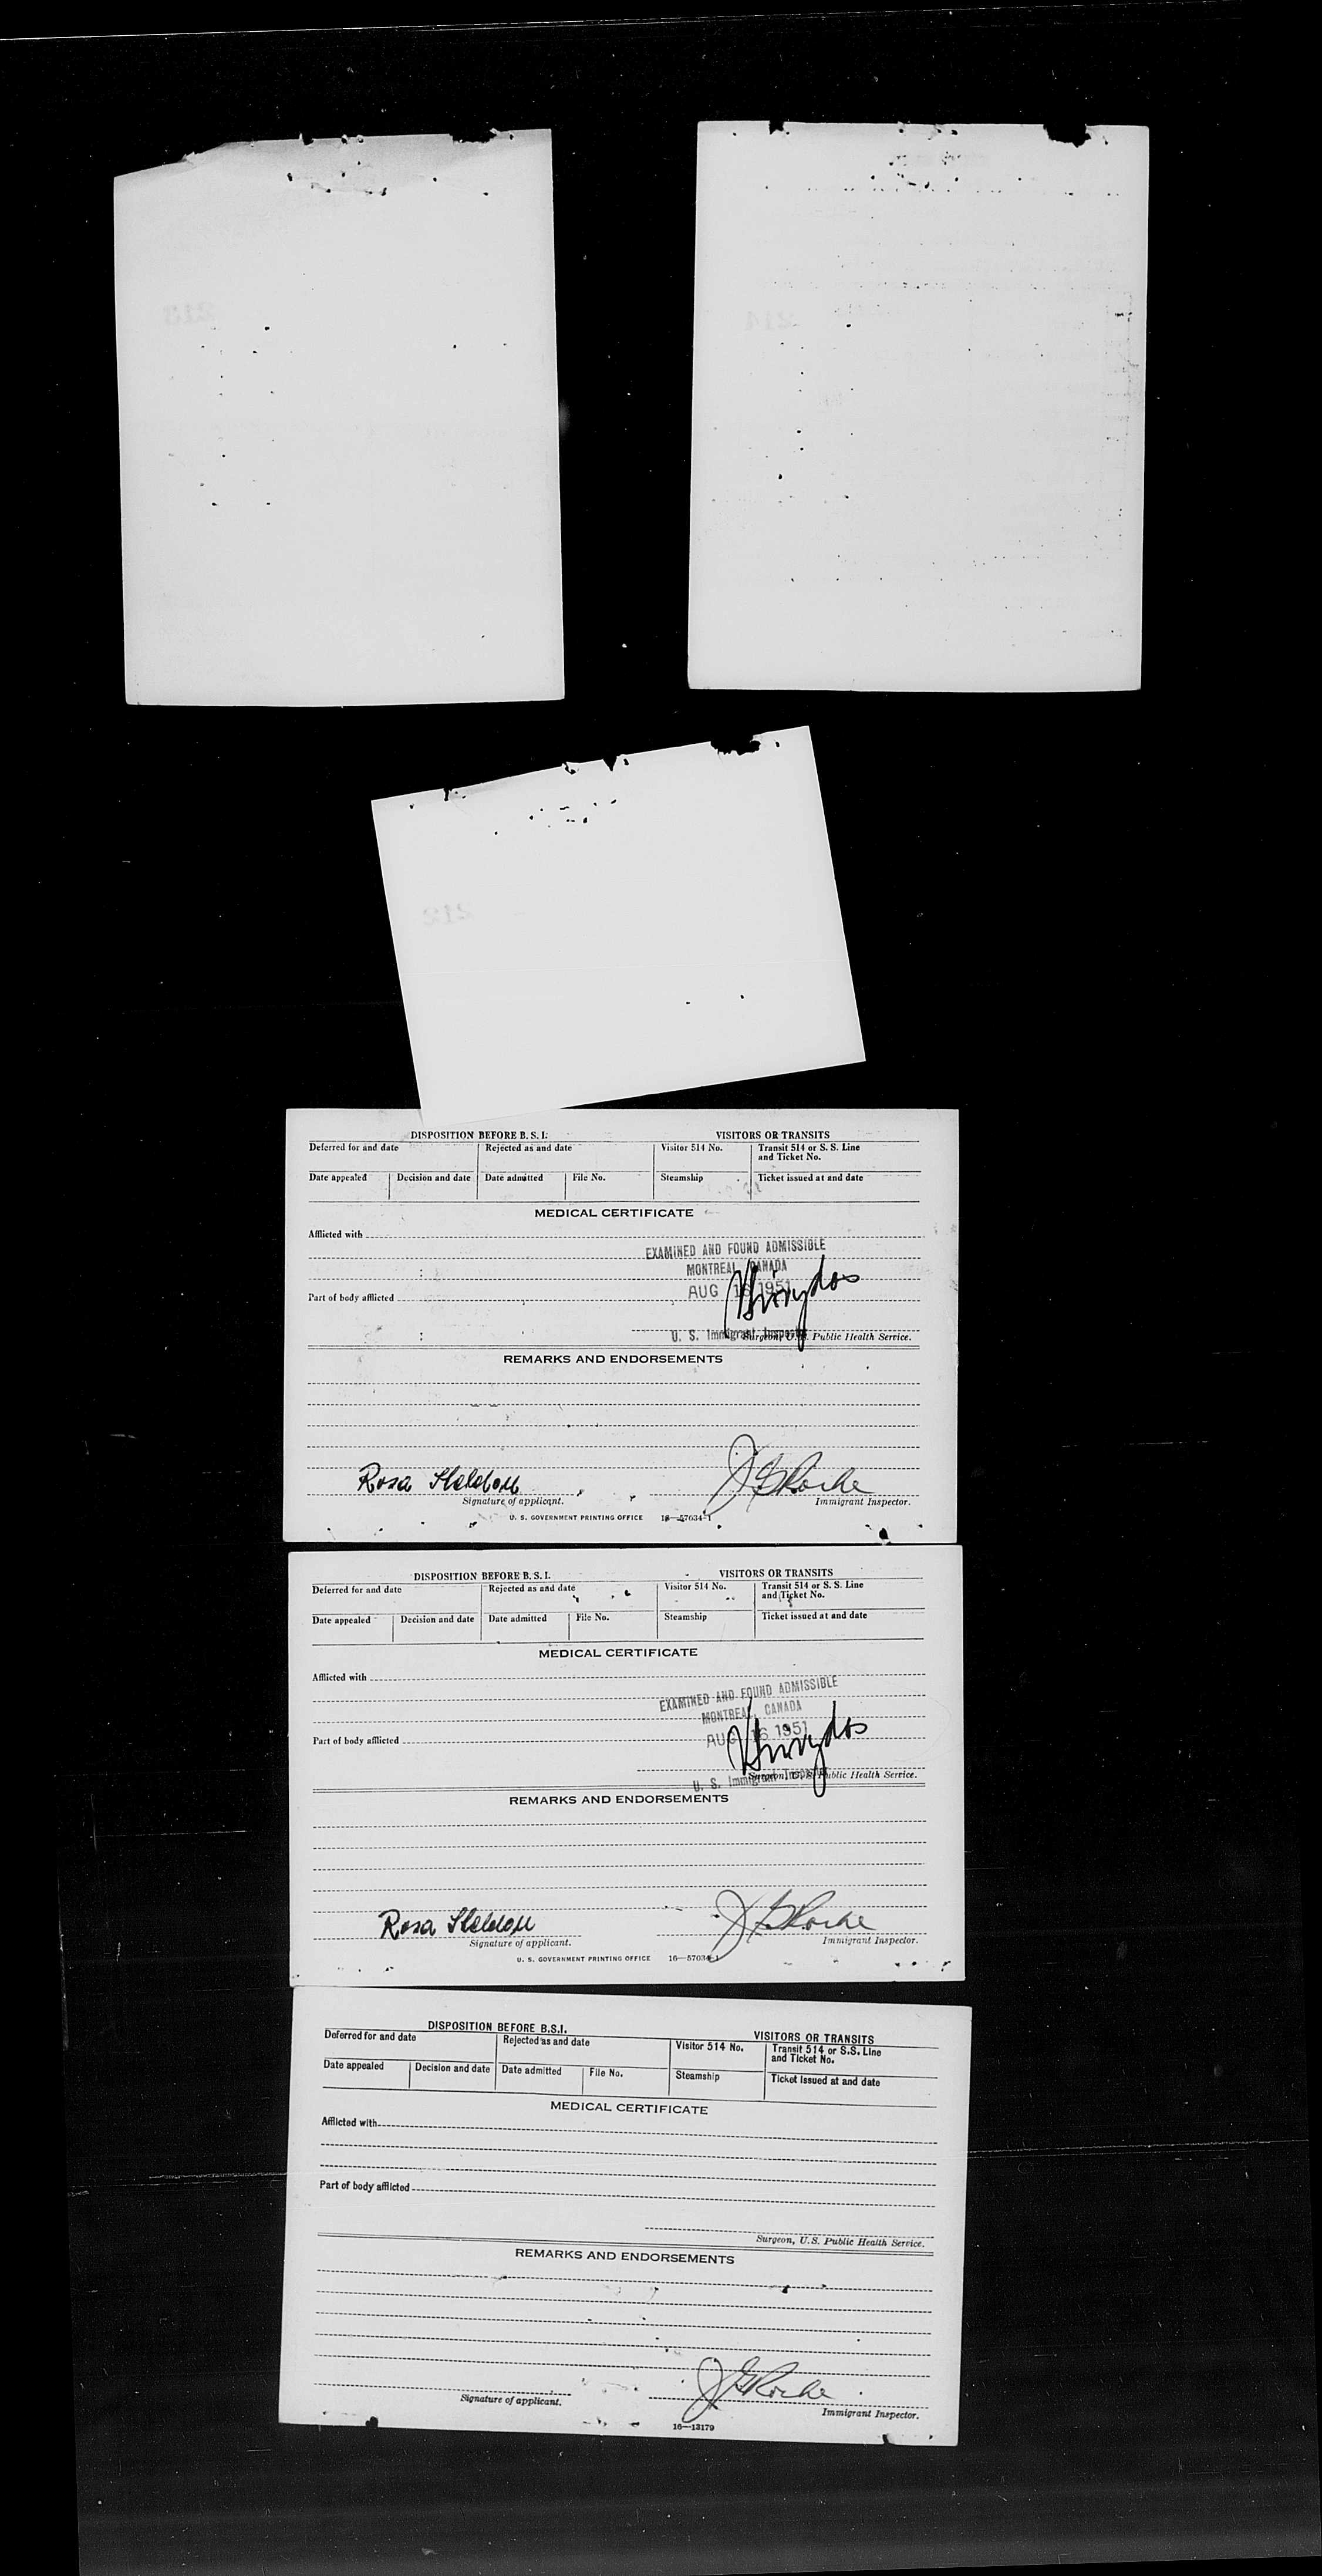 213
214
212
DISPOSITION BEFORE B. S. I. VISITORS OR TRANSITS
Deferred for and date Rejected as and date Visitor 514 No. Transit 514 or S. S. Line
and Ticket No.
Date appealed Decision and date Date admitted File No. Steamship Ticket issued at and date
MEDICAL CERTIFICATE
Afflicted with
EXAMINED AND FOUND ADMISSIBLE
MONTREAL, CANADA
AUG 16 1951
Part of body afflicted
U. S. Immigrant Inspector
Surgeon, U. S. Public Health Service.
REMARKS AND ENDORSEMENTS
Rosa
Signature of applicant. Immigrant Inspector.
U. S. GOVERNMENT PRINTING OFFICE 16—57034-1
DISPOSITION BEFORE B. S. I. VISITORS OR TRANSITS
Deferred for and date Rejected as and date Visitor 514 No. Transit 514 or S. S. Line
and Ticket No.
Date appealed Decision and date Date admitted File No. Steamship Ticket issued at and date
MEDICAL CERTIFICATE
Afflicted with
EXAMINED AND FOUND ADMISSIBLE
MONTREAL, CANADA
AUG 16 1951
Part of body afflicted
Surgeon, U. S. Public Health Service.
U. S. Immigrant Inspector
REMARKS AND ENDORSEMENTS
Rosa
Signature of applicant. Immigrant Inspector.
U. S. GOVERNMENT PRINTING OFFICE 16—57034-1
DISPOSITION BEFORE B.S.I. VISITORS OR TRANSITS
Deferred for and date Rejected as and date Visitor 514 No. Transit 514 or S.S. Line
and Ticket No.
Date appealed Decision and date Date admitted File No. Steamship Ticket issued at and date
MEDICAL CERTIFICATE
Afflicted with
Part of body afflicted
Surgeon, U.S. Public Health Service.
REMARKS AND ENDORSEMENTS
Signature of applicant. Immigrant Inspector.
16—13179